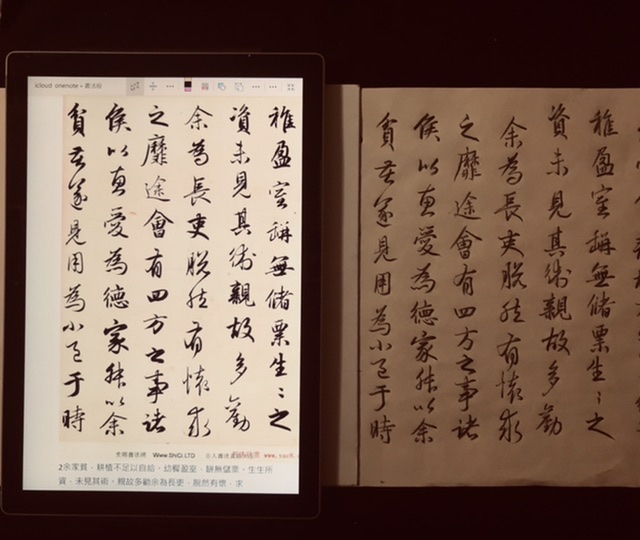 icloud onenote » 書法帖
稚盈室缾無儲粟生〻之
資未見其術親故多勸
余為長吏脫然有懷求
之靡途會有四方之事諸
侯以惠愛為德家叔以余
貧苦遂見用為小邑于時
Www.ShiCi.LTD
2余家貧，耕植不足以自給。幼稚盈室，缾無儲粟，生生所
資，未見其術。親故多勸余為長吏，脫然有懷，求
稚盈室缾無儲粟生〻之
資未見其術親故多勸
余為長吏脫然有懷求
之靡途會有四方之事諸
侯以惠愛為德家叔以余
貧苦遂見用為小邑于時